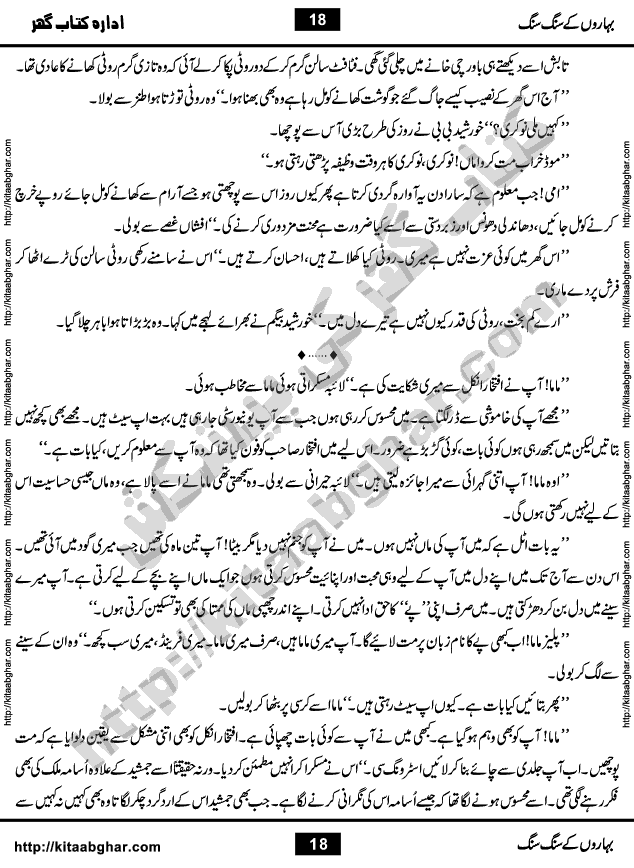 ادارہ کتاب گھر 18 بہاروں کے سنگ سنگ
تابش اسے دیکھتے ہی باورچی خانے میں چلی گئی تھی۔ فٹافٹ سالن گرم کرکے دو روٹی پکا کر لے آئی کہ وہ تازی گرم روٹی کھانے کا عادی تھا۔
’’آج اس گھر کے نصیب کیسے جاگ گئے جو گوشت کھانے کو مل رہا ہے وہ بھی بھنا ہوا۔‘‘ وہ روٹی توڑتا ہوا طنز سے بولا۔
’’کہیں ملی نوکری؟‘‘ خورشید بی بی نے روز کی طرح بڑی آس سے پوچھا۔
’’موڈ خراب مت کرو اماں! نوکری، نوکری کا ہر وقت وظیفہ پڑھتی رہتی ہو۔‘‘
’’امی! جب معلوم ہے کہ سارا دن یہ آوارہ گردی کرتا ہے پھر کیوں روز اس سے پوچھتی ہو جسے آرام سے کھانے کو مل جائے روپے خرچ
کرنے کو مل جائیں، دھاندلی دھونس اور زبردستی سے اسے کیا ضرورت ہے محنت مزدوری کرنے کی۔‘‘ افشاں غصے سے بولی۔
’’اس گھر میں کوئی عزت نہیں ہے میری۔ روٹی کیا کھلاتے ہیں، احسان کرتے ہیں۔‘‘ اس نے سامنے رکھی روٹی سالن کی ٹرے اٹھا کر
فرش پر دے ماری۔
’’ارے کم بخت، روٹی کی قدر کیوں نہیں ہے تیرے دل میں۔‘‘ خورشید بیگم نے بھرائے لہجے میں کہا۔ وہ بڑبڑاتا ہوا باہر چلا گیا۔
♦......♦
’’ماما! آپ نے افتخار انکل سے میری شکایت کی ہے۔‘‘ لائبہ مسکراتی ہوئی ماما سے مخاطب ہوئی۔
’’مجھے آپ کی خاموشی سے ڈر لگتا ہے۔ میں محسوس کر رہی ہوں جب سے آپ یونیورسٹی جا رہی ہیں بہت اپ سیٹ ہیں۔ مجھے بھی کچھ نہیں
بتاتیں لیکن میں سمجھ رہی ہوں کوئی بات، کوئی گڑبڑ ہے ضرور۔ اس لیے میں افتخار صاحب کو فون کیا تھا کہ وہ آپ سے معلوم کریں، کیا بات ہے۔‘‘
’’اوہ ماما! آپ اتنی گہرائی سے میرا جائزہ لیتی ہیں۔‘‘ لائبہ حیرانی سے بولی۔ وہ سمجھتی تھی ماما نے اسے پالا ہے، وہ ماں جیسی حساسیت اس
کے لیے نہیں رکھتی ہوں گی۔
’’یہ بات اٹل ہے کہ میں آپ کی ماں نہیں ہوں۔ میں نے آپ کو جنم نہیں دیا مگر بیٹا! آپ تین ماہ کی تھیں جب میری گود میں آئی تھیں۔
اس دن سے آج تک میں اپنے دل میں آپ کے لیے وہی محبت اور اپنائیت محسوس کرتی ہوں جو ایک ماں اپنے بچے کے لیے کرتی ہے۔ آپ میرے
سینے میں دل بن کر دھڑکتی ہیں۔ میں صرف اپنی ’’پے‘‘ کا حق ادا نہیں کرتی۔ اپنے اندر چھپی ماں کی ممتا کی بھی تو تسکین کرتی ہوں۔‘‘
’’پلیز ماما! اب کبھی پے کا نام زبان پر مت لائیے گا۔ آپ میری ماما ہیں، صرف میری ماما۔ میری فرینڈ، میری سب کچھ۔‘‘ وہ ان کے سینے
سے لگ کر بولی۔
’’پھر بتائیں کیا بات ہے۔ کیوں اپ سیٹ رہتی ہیں۔‘‘ ماما اسے کرسی پر بٹھا کر بولیں۔
’’ماما! آپ کو بھی وہم ہو گیا ہے۔ کبھی میں نے آپ سے کوئی بات چھپائی ہے۔ افتخار انکل کو بھی اتنی مشکل سے یقین دلوایا ہے کہ مت
پوچھیں۔ اب آپ جلدی سے چائے بنا کر لائیں اسٹرونگ سی۔‘‘ اس نے مسکرا کر انہیں مطمئن کر دیا۔ ورنہ حقیقتاً اسے جمشید کے علاوہ اُسامہ ملک کی بھی
فکر رہنے لگی تھی۔ اسے محسوس ہونے لگا تھا کہ جیسے اُسامہ اس کی نگرانی کرنے لگا ہے۔ جب بھی جمشید اس کے اردگرد چکر لگاتا تو وہ بھی کہیں نہ کہیں سے
http://kitaabghar.com 18 بہاروں کے سنگ سنگ
http://kitaabghar.com
http://kitaabghar.com
http://kitaabghar.com
http://kitaabghar.com
http://kitaabghar.com
http://kitaabghar.com
http://kitaabghar.com
http://kitaabghar.com
http://kitaabghar.com
http://kitaabghar.com
http://kitaabghar.com
http://kitaabghar.com
کتاب گھر کی پیشکش
http://kitaabghar.com